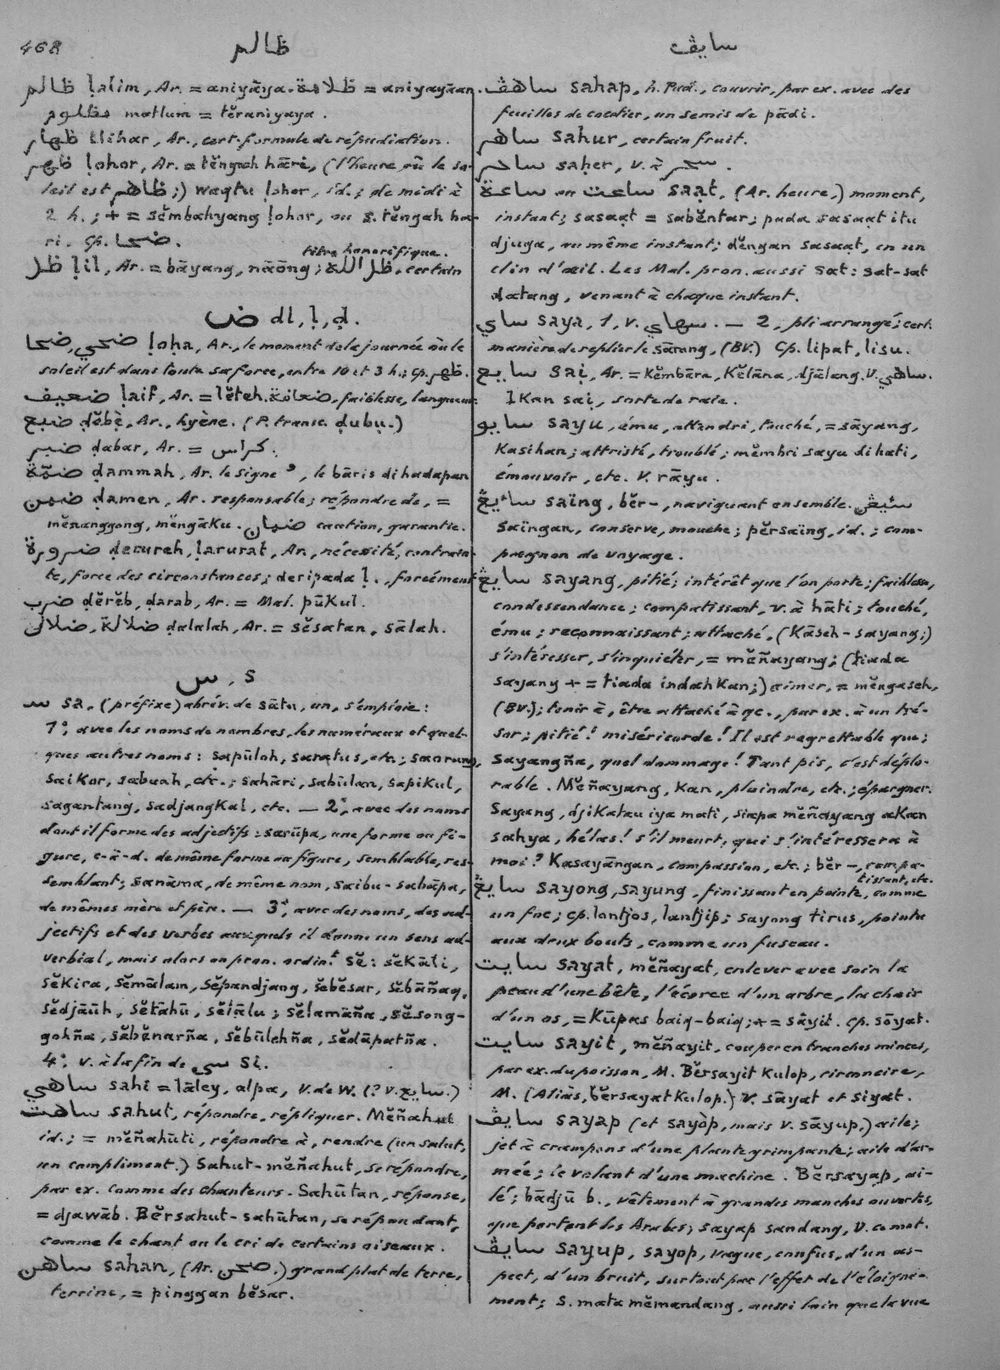 468
ظالم
سايڤ
ظالم ḷalim, Ar. = aniyāya. ظلامة = aniyayāan.
مظلوم matlum = tĕraniyaya.
ظهار ḷlihar, Ar., cert. formule de répudiation.
ظهر ḷohor, Ar. = tĕngah hāri, (l'heure où le so-
leil est ظاهر;) waqtu ḷohor, id.; de midi à
2 h.; + = sĕmbahyang ḷohor, ou s. tĕngah ha-
ri. Cp. ضحا.
titre honorifique.
ظل ḷil, Ar. = bāyang, nāōng; ظل الله, certain
ض dl, ḷ, ḍ.
ضحي, ضحا ḷoḥa, Ar., le moment de la journée où le
soleil est dans toute sa force, entre 10 et 3 h.; cp. ظهر.
ضعيف ḷaif, Ar. = lĕteh. ضعافة, faiblesse, langueur.
ضبع ḍĕbĕ, Ar., hyène. (P. transc. ḍubu.)
ضبر ḍabar, Ar. = كراس.
ضمّة ḍammah, Ar. le signe ُ, le bāris di hadapan
ضمن ḍamen, Ar. responsable; répondre de, =
mĕnanggong, mĕngāku. ضمان caution, garantie.
ضرورة ḍerureh, ḷarurat, Ar., nécessité, contrain-
te, force des circonstances; deripada ḷ., forcément
ضرب ḍĕrĕb, ḍarab, Ar. = Mal. pūkul.
ضلالة, ضلال ḍalalah, Ar. = sĕsatan, sālah.
س, s
س sa, (préfixe) abrév. de sātu, un, s'emploie:
1°, avec les noms de nombres, les numéraux et quel-
ques autres noms: sapūloh, saratus, etc.; saorang,
saikor, sabuah, etc.; sahāri, sabūlan, sapikul,
sagantang, sadjangkal, etc. — 2°, avec des noms
dont il forme des adjectifs: sarūpa, une forme ou fi-
gure, c-à-d. de même forme ou figure, semblable, res-
semblant; sanāma, de même nom, saibu-sabāpa,
de mêmes mère et père. — 3°, avec des noms, des ad-
jectifs et des verbes auxquels il donne un sens ad-
verbial, mais alors on pron. ordint sĕ: sĕkāli,
sĕkira, sĕmālam, sĕpandjang, sĕbĕsar, sĕbāñaq,
sĕdjāūh, sĕtāhū, sĕlālu; sĕlamāña, sĕsong-
gohña, sĕbĕnarña, sĕbūlehña, sĕdāpatña.
4°, v. à la fin de سي si.
ساهي sahi = lāley, alpa, V. de W. (? v. سايع.)
ساهت sahut, répondre, répliquer. Mĕñahut
id.; = mĕñahūti, répondre à, rendre (un salut,
un compliment.) Sahut-mĕñahut, se répondre,
par ex. comme des chanteurs. Sahūtan, réponse,
= djawāb. Bĕrsahut-sahūtan, se répondant,
comme le chant ou le cri de certains oiseaux.
ساهن sahan, (Ar. صحن.) grand plat de terre,
terrine, = pinggan bĕsar.
ساهڤ sahap, h. Pad., couvrir, par ex. avec des
feuilles de cocotier, un semis de pādi.
ساهر sahur, certain fruit.
ساحر saḥer, v. à سحر.
ساعة ou ساعت saạt, (Ar. heure,) moment,
instant; sasaạt = sabĕntar; pada sasaạt itu
djuga, au même instant; dĕngan sasaạt, en un
clin d'œil. Les Mal. pron. aussi sat: sat-sat
datang, venant à chaque instant.
ساي saya, 1, v. سهاي. — 2, pli arrangé; cert.
manière de replier le sārong, (BV.) Cp. lipat, lisu.
سايع saị, Ar. = kĕmbāra, kĕlāna, djālang. V. ساهي.
Ikan saị, sorte de raie.
سايو sayu, ému, attendri, touché, = sāyang,
kasihan; attristé, troublé; mĕmbri sayu di hati,
émouvoir, etc. V. rāyu.
سائيڠ saïng, bĕr-, naviguant ensemble. سئيڠن
saïngan, conserve, mouche; pĕrsaïng, id.; com-
pagnon de voyage.
سايڠ sayang, pitié; intérêt que l'on porte; faiblesse,
condescendance; compatissant, v. à hāti; touché,
ému; reconnaissant; attaché, (kāseh-sayang;)
s'intéresser, s'inquiéter, = mĕñayang; (tiada
sayang + = tiada indahkan;) aimer, = mĕngaseh,
(BV.); tenir à, être attaché à qc., par ex. à un tré-
sor; pitié! miséricorde! Il est regrettable que;
sayangña, quel dommage! Tant pis, c'est déplo-
rable. Mĕñayang, kan, plaindre, etc.; épargner.
Sayang, djikalau iya mati, siapa mĕñayang akan
sahya, hélas! s'il meurt, qui s'intéressera à
moi? Kasayāngan, compassion, etc.; bĕr-, compa-
tissant, etc.
سايڠ sayong, sayung, finissant en pointe, comme
un foc; cp. lantjos, lantjip; sayong tirus, pointu
aux deux bouts, comme un fuseau.
سايت sayat, mĕñayat, enlever avec soin la
peau d'une bête, l'écorce d'un arbre, la chair
d'un os, = kūpas baiq-baiq; + = sāyit. Cp. sōyat.
سايت sayit, mĕñayit, couper en tranches minces,
par ex. du poisson, M. Bĕrsayit kulop, circoncire,
M. (Alias, bĕrsayat kulop.) V. sāyat et siyat.
سايڤ sayap (et sayòp, mais v. sāyup,) aile;
jet à crampons d'une plante grimpante; aile d'ar-
mée; le volant d'une machine. Bĕrsayap, ai-
lé; bādjū b., vêtement à grandes manches ouvertes,
que portent les Arabes; sayap sandang, v. ce mot.
سايڤ sayup, sayop, vague, confus, d'un as-
pect, d'un bruit, surtout par l'effet de l'éloigne-
ment; s. mata mĕmandang, aussi loin que la vue